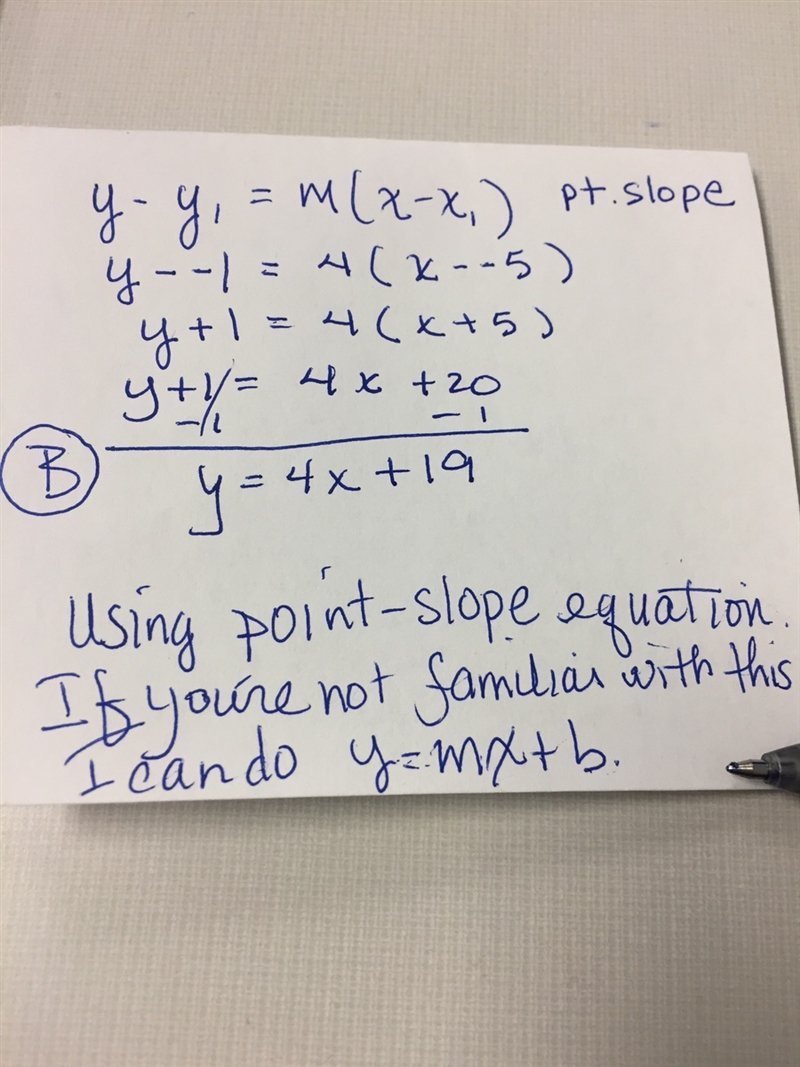 y - y₁ = m(x - x₁) pt. slope
y - -1 = 4(x - -5)
y + 1 = 4(x + 5)
y + 1 = 4x + 20
-1 -1
B y = 4x + 19
Using point-slope equation.
If you're not familiar with this
I can do y = mx + b.